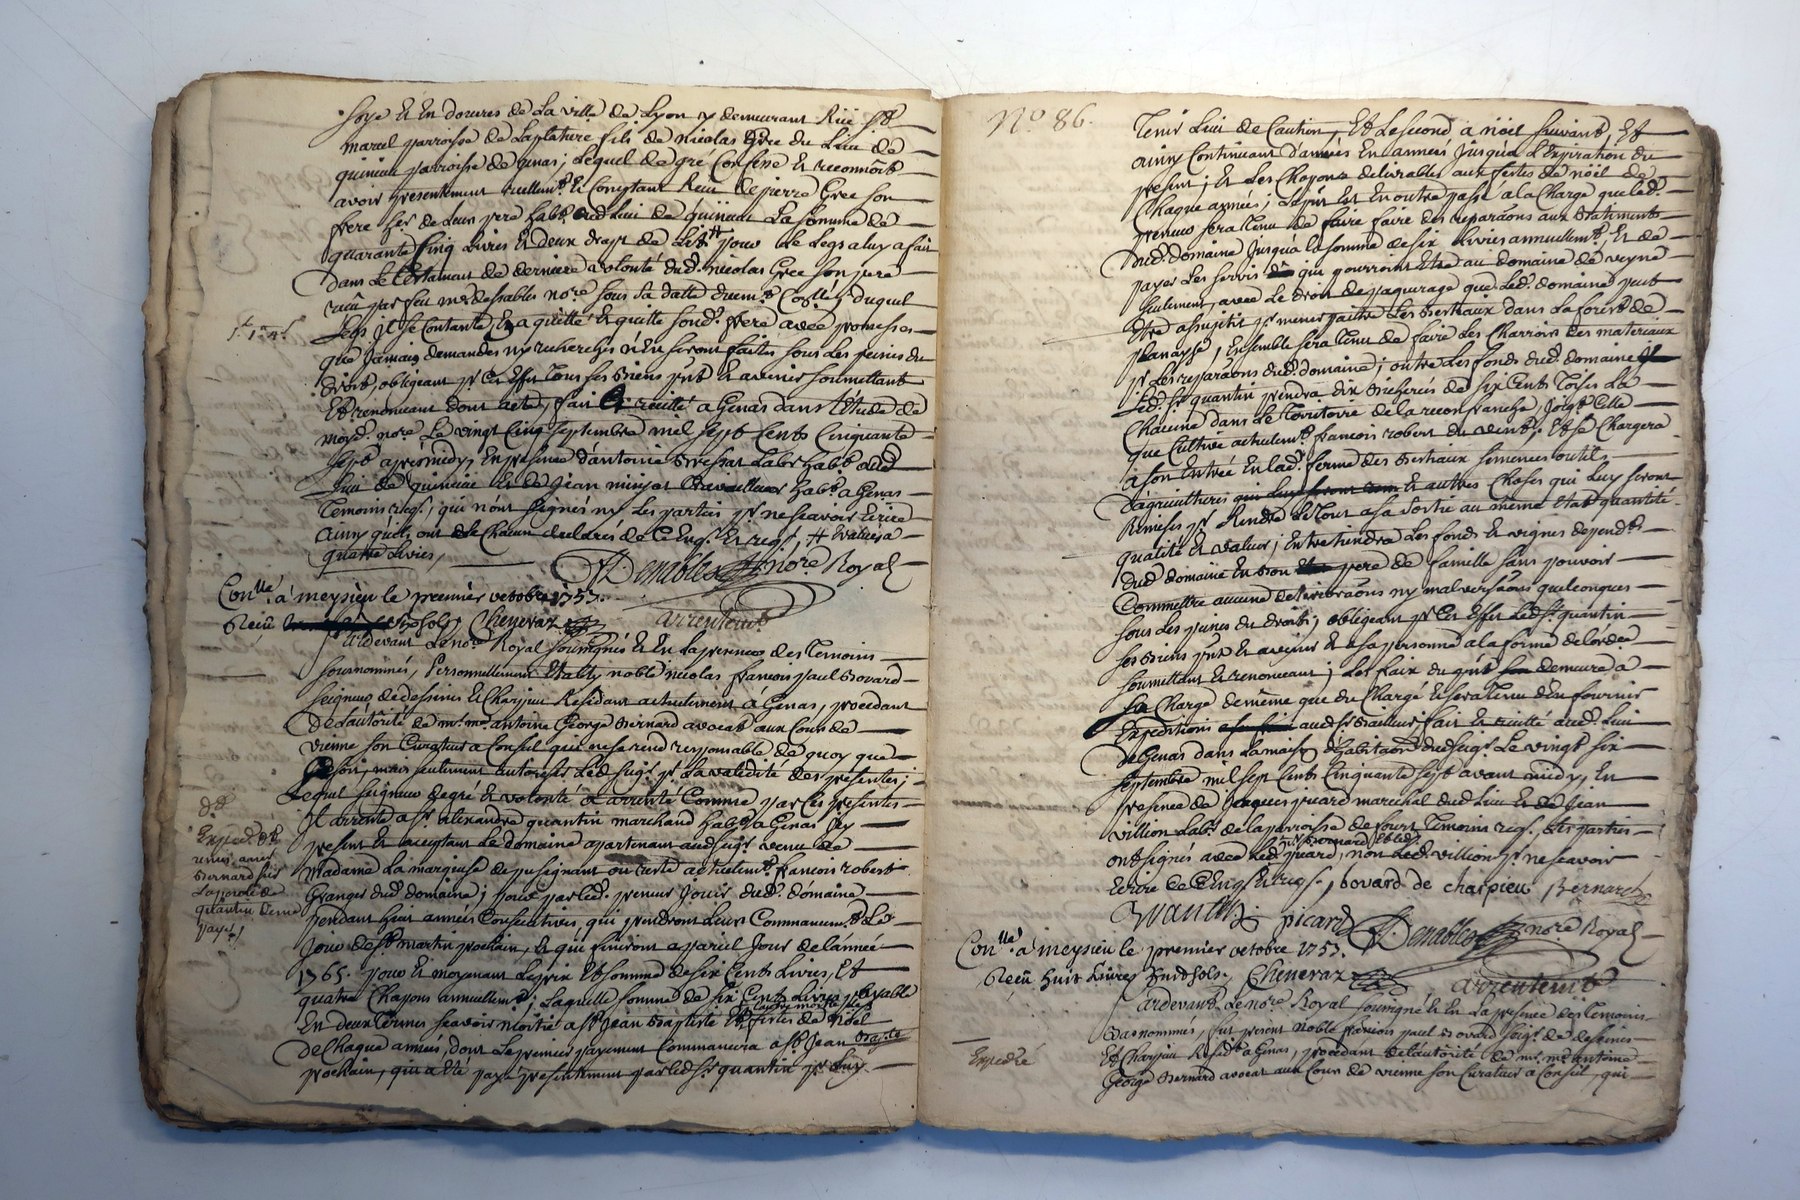 soye et en dorures de la ville de Lyon y demeurant Rüe St
marcel parroisse de Laplatiere fils de nicolas Gree du Lieu de
quincieu parroisse de genas; Lequel de gré Confesse et reconnoit
avoir presentement reellemt. et Comptant Reçu de pierre Gree son
frere hér. de Leur pere habt. aud. Lieu de quinieu La somme de
quarante Cinq Livres et deux draps de Lit # pour Le Legs a luy a fait
dans Le testament de derniere volonté dud. nicolas Gree son pere
reçu par feu me. dessables nore. sous sa datte
Legs il se Contante, En a quitté et quitte sond. frere avec promesses
que Jamais demandes ny recherches n'En seront faites sous Les peines du
droit, obligeant pr. Cet Effet Tous ses Biens pnts et avenir soumettant
Et renonceant dont acte, fait et recitté a Genas dans l'Etude de
moyd. nore. Le vingt Cinq septembre mil sept Cents Cinquante
sept apres midy, En presence d'antoine Labr habt. aud.
Lieu de quincieu et de Jean minjat travailleur habt. a Genas
Temoins reqs., qui n'ont signés ny Les parties pr. ne scavoir Ecrire
ainsy qu'ils ont de Chacun declarés de Ce Enq. et reqs. # Evalués a
quatre Livres,
Denables nore Royal
Conllé. à meysieu le premier octobre 1757.
Reçu six sols, Cheneraz
arrentemt.
Pardevant Le nore. Royal soussignés et En Lapresence des Temoins
sousnommés, Personnellement Etably noble nicolas françois paul Bovard
seigneur de dessines et Charpieu Residant actuellement à Genas, procedant
De L'autorité de mr. me. antoine George Bernard avocat aux Cours de
vienne son Curateur a Conseil qui ne se rend responsable de quoy que
Ce soit, mais seulement autorise Led. seigr. pr. La validité des presentes;
Lequel seigneur de gré et volonté a arrenté Comme par Ces presentes
Il arrente a sr. alexandre quantin marchand habt. a Genas Icy
present et acceptant Le domaine apartenant aud. seigr. venu de
Madame La marquise de pusignant ou reste actuelemt. françois robert
Granger dud. domaine; pour par led. preneur Jouir dud. domaine
pendant huit années Consecutives, qui prendront Leur Commancemt. Le
Jour de St. martin prochain, et qui finiront a pareil Jour de L'année
1765. pour et moyenant Le prix Et somme de six Cents Livres, Et
quatre Chapons annuellemt.; Laquelle somme de six Cents Livres payable
En deux Termes sçavoir moitié a St. Jean Baptiste Et L'autre moitié aux festes de Nöel
de Chaque année, dont Le premier payement Commancera a St. Jean Bapte.
prochain, qui a été payé presentement par led. sr. quantin pr. Luy
dt.
Exped. Et
remis a mr.
Bernard sur
qu'antin l'a mé
payé
No. 86.
Tenir Lieu de Caution, Et Le second a nöel suivant, Et
ainsy Continuant d'années En années Jusqu'a L'Expiration du
present; et Les Chapons delivrables aux fêtes de nöel de
Chaque année; Depur Est En outre passé a la Charge que led.
preneur sera Tenu de faire faire des reparaons aux Batiments
dud. domaine Jusqu'a la somme de six Livres annuellemt., Et de
payer Les servis qui pourroint Etre au domaine de veyne
seulement, avec Le droit de paqueirage que Led. domaine peut
Etre assujetir pr. mener paitre Les Bestiaux dans La forest de
planayse, Ensemble sera Tenu de faire Les Charrois des materiaux
pr. Les reparaons dud. domaine; outre Les fonds dud. domaine
Led. sr. quantin prendra dix Bicherées de six Cents Toises La
Chacune dans Le Territoire de la recon franche, Joigt. Celle
que Cultive actuelemt. françois robert du vent; Et se Chargera
a son Entrée En lad. ferme des Bestiaux semences outils
d'agricultures et autres Choses qui Luy seront
Remises pr. Rendre Le Tout a sa sortie au même etat quantité
qualité et valeur; Entretiendra Les fonds et vignes dependts.
dud. domaine En Bon pere de famille sans pouvoir
Commettre aucune deterioraons ny malversaons quelconques
sous Les peines du droit; obligeant pr. Cet Effet Led. sr. quantin
ses Biens pnts et avenir et sa personne a la forme de L'ord.
soumettant et renonceant; Les faix du pnt demeure a
sa Charge de même que du Charge et sera Tenu d'En fournir
Expeditions aud. sr. Bailleur; fait et recitté aud. Lieu
de Genas dans La maison d'habitaon dud. seigr. Le vingt six
septembre mil sept Cents Cinquante sept avant midy, En
presence de Jacques picard marechal dud. Lieu et de Jean
villion Labr. de la parroisse de Temoins reqs. Les parties
ont signés avec Led. sr. Bernard et led. picard, non Led. villion pr. ne scavoir
Ecrire de Ce Enqs et reqs., bovard de charpieu Bernard
Quantin picard Denables nore Royal
Conllé. à meysieu le premier octobre 1757.
Reçu huit Livres huit sols, Cheneraz
arrentemt.
Pardevant. Le nore. Royal soussigné et En La presence des Temoins
Basnommés, fut present Noble françois paul Bovard seigr. de dessines
Et Charpieu Residt. a Genas, procedant de L'autorité de mr. me. antoine
George Bernard avocat aux Cours de vienne son Curateur a Conseil, qui
Expedié